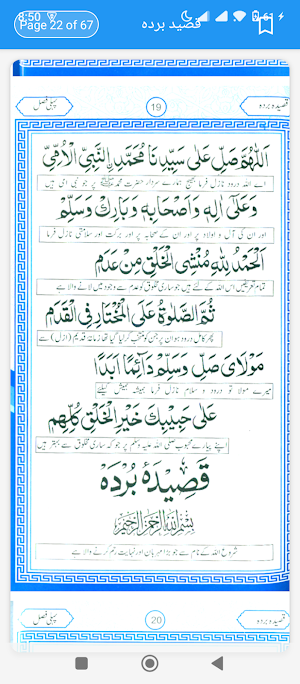 8:50
Page 22 of 67
قصیده برده
پہلی فصل
19
قصیدہ بردہ
اَللّٰهُمَّ صَلِّ عَلٰى سَيِّدِنَا مُحَمَّدِ النَّبِيِّ الْاُمِّيِّ
اے اللہ درود نازل فرما ہمارے سردار حضرت محمد ﷺ پر جو نبی امی ہیں
وَعَلٰى اٰلِهٖ وَاَصْحَابِهٖ وَبَارِكْ وَسَلِّمْ
اور ان کی آل و اولاد پر اور ان کے صحابہ پر اور برکت اور سلامتی نازل فرما
اَلْحَمْدُ لِلّٰهِ مُنْشِی الْخَلْقِ مِنْ عَدَمٍ
تمام تعریفیں اس اللہ کے لئے ہیں جو ساری مخلوق کو عدم سے وجود میں لانے والا ہے
ثُمَّ الصَّلٰوةُ عَلَى الْمُخْتَارِ فِی الْقِدَمِ
پھر کامل درود ہو ان پر جن کو منتخب کر لیا گیا تھا زمانۂ قدیم (ازل) سے
مَوْلَایَ صَلِّ وَسَلِّمْ دَآئِمًا اَبَدًا
میرے مولا تو درود و سلام نازل فرما ہمیشہ ہمیش کیلئے
عَلٰى حَبِيْبِكَ خَيْرِ الْخَلْقِ كُلِّهِمٖ
اپنے پیارے محبوب صلی اللہ علیہ وسلم پر جو کہ ساری مخلوق سے بہتر ہیں
قَصِیْدَهٔ بُرْدَہ
بِسْمِ اللهِ الرَّحْمٰنِ الرَّحِيْمِ
شروع اللہ کے نام سے جو بڑا مہربان اور نہایت رحم کرنے والا ہے
پہلی فصل
20
قصیدہ بردہ